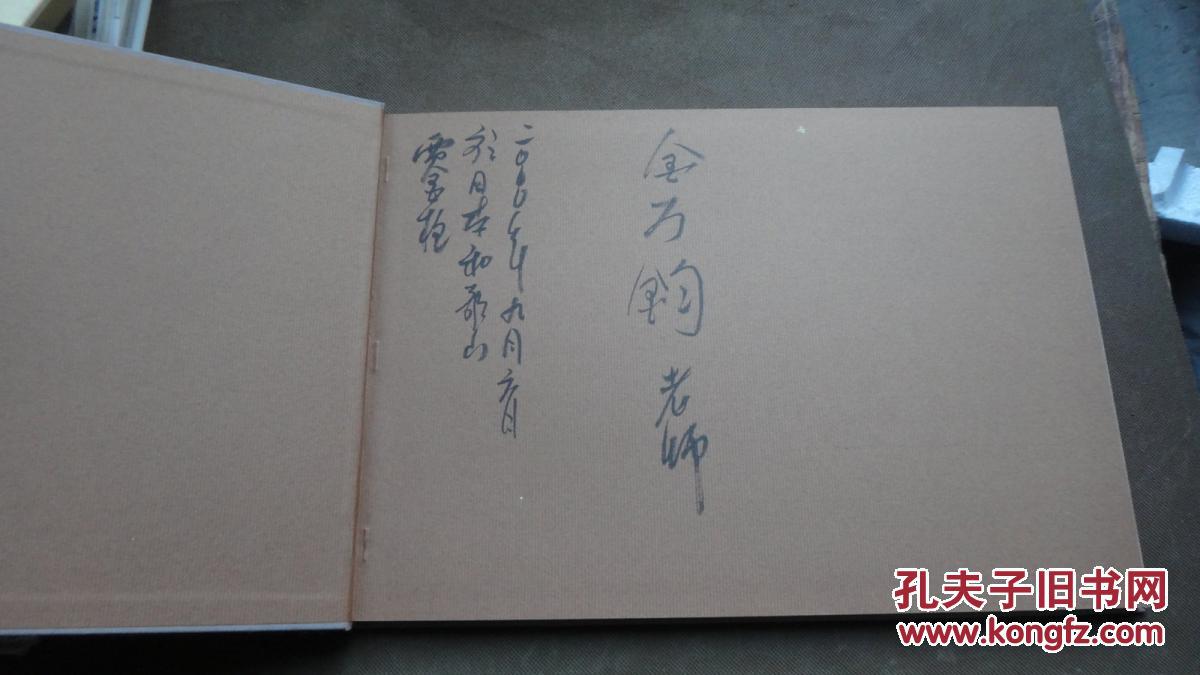 金万钧老师
二〇〇〇年九月六日
于日本和歌山
孔夫子旧书网
www.kongfz.com